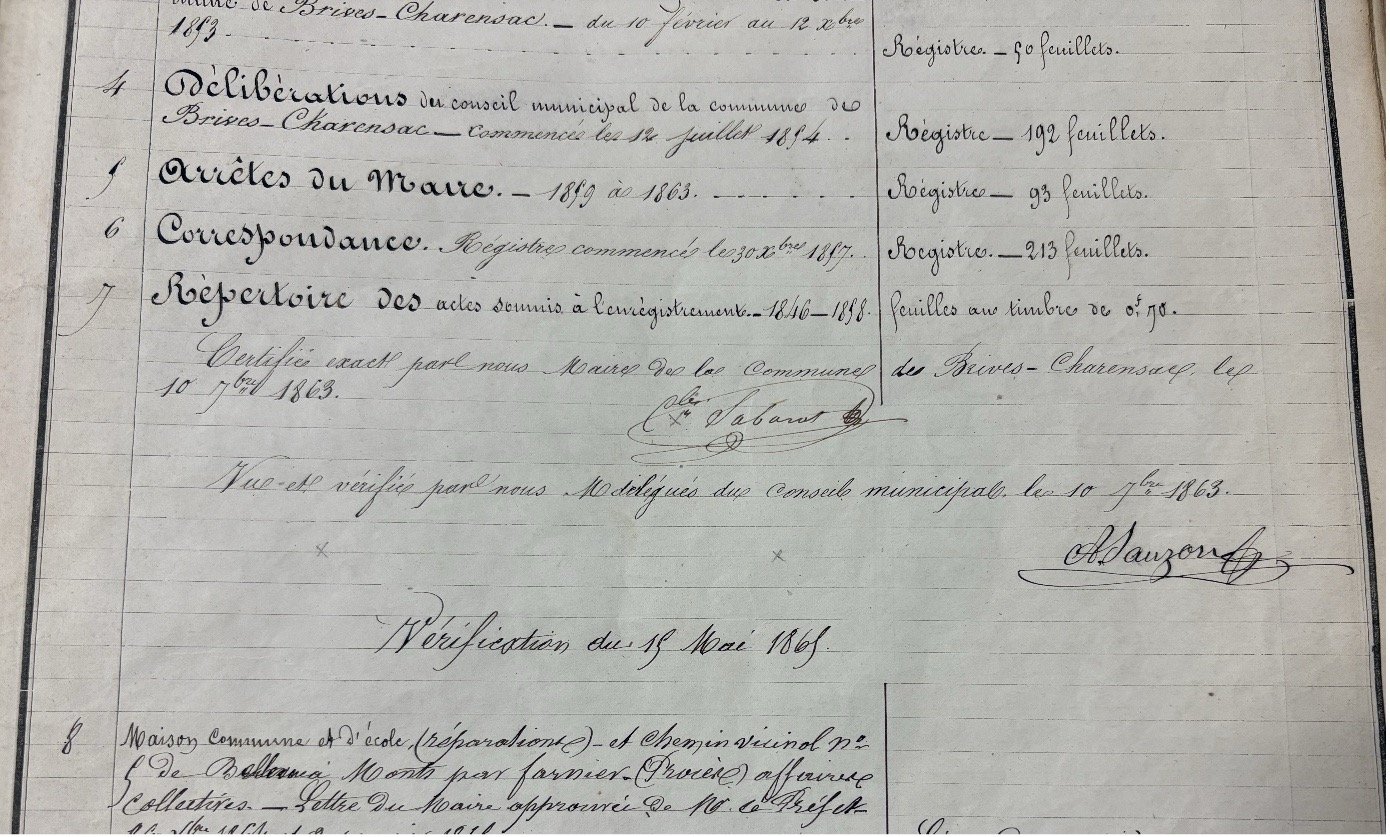 de Brives-Charensac. — du 10 février au 12 Xbre
1853.
Régistre. — 50 feuillets.
4 Délibérations du conseil municipal de la commune de
Brives-Charensac — commencé le 12 juillet 1854.
Régistre — 192 feuillets.
5 Arrêtés du Maire. — 1859 à 1863.
Régistre — 93 feuillets.
6 Correspondance. Régistre commencé le 30 Xbre 1857.
Registre. — 213 feuillets.
7 Répertoire des actes soumis à l'enrégistrement. — 1846 — 1858.
feuilles au timbre de 0f 70.
Certifié exact par nous Maire de la Commune de Brives-Charensac, le
10 7bre 1863.
Sabarot
Vu et vérifié par nous M délégués du conseil municipal le 10 7bre 1863.
A. Sauzon
Vérification du 15 Mai 1865.
8 Maison Commune et d'école, (réparations) — et chemin vicinal no
5 de à Monts par farnier — (Procès) affaires
collectives. — Lettre du Maire approuvée de Mr. le Préfet